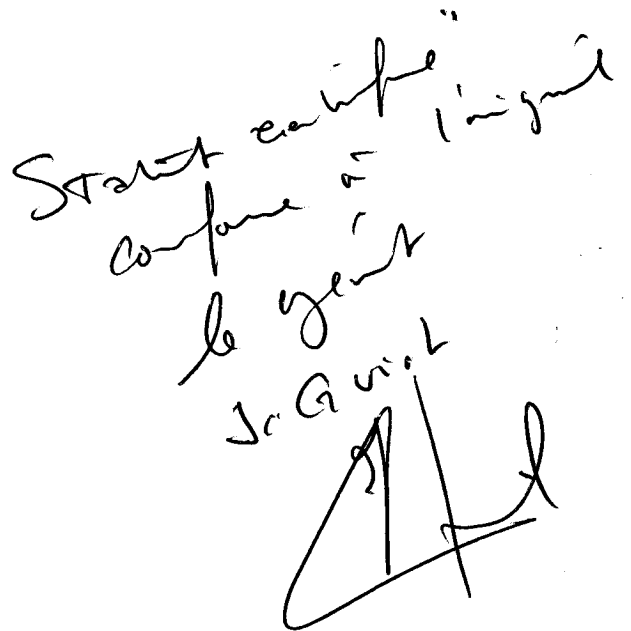 Statut certifié
conforme à l'original
le gérant
J. Guiot